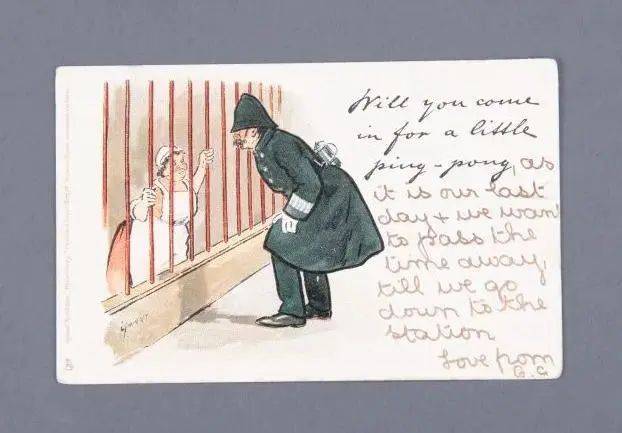 Will you come
in for a little
ping-pong, as
it is our last
day & we want
to pass the
time away,
till we go
down to the
station
Love from
G. G